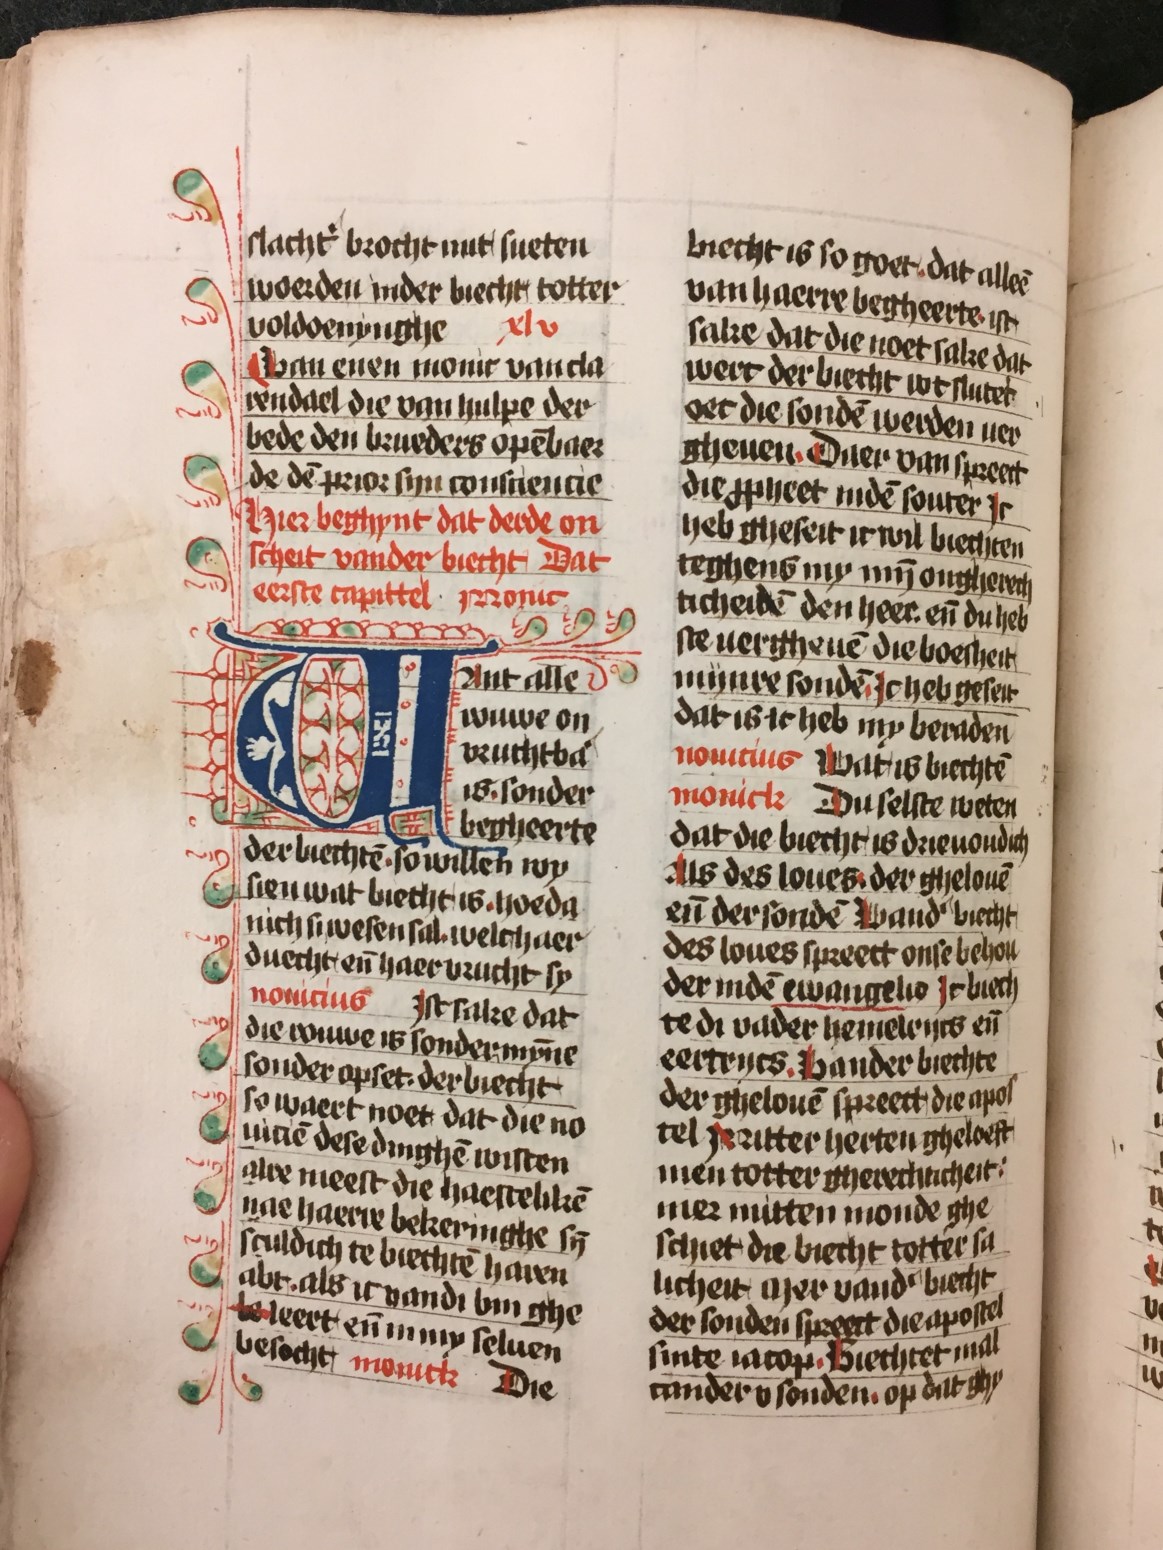 slacht' brocht mit sueten
woerden inder biecht totter
voldoenynghe xlv
Van enen monic van cla
rendael die van hulpe der
bede den brueders opēbaer
de dē prior syn consciencie
Hier beghynt dat derde on
scheit vander biecht Dat
eerste capittel monic
Want alle
rouwe on
vruchtba
is. sonder
begheerte
der biechtē. so willen wy
sien wat biecht is. hoeda
nich si wesen sal. welc haer
duecht eñ haer vrucht sy
nouicius Ist sake dat
die rouwe is sonder mȳne
sonder opset. der biecht
so waert noet dat die no
uiciē dese dinghē wisten
alre meest die haestelikē
nae haerre bekeringhe sȳ
sculdich te biechtē haren
abt. als ic vandi bin ghe
leert eñ in my seluen
besocht monick Die
biecht is so goet. dat alleē
van haerre begheerte. ist
sake dat die noet sake dat
wert der biecht wt slutet
oec die sondē werden ver
gheuen. Daer van spreect
die ppheet indē souter Ic
heb gheseit ic wil biechten
teghens my mȳ ongherech
ticheidē den heer. eñ du heb
ste uergheuē die boesheit
mijnre sondē. Ic heb geseit
dat is ic heb my beraden
nouicius Wat is biechtē
monick Du selste weten
dat die biecht is drieuoudich
Als des loues. der ghelouē
eñ der sondē Vand' biecht
des loues spreect onse behou
der indē ewangelio Ic biech
te di vader hemelrycs eñ
eertrycs. Vander biechte
der ghelouē spreect die apos
tel Mitter herten gheloeft
men totter gherechticheit:
mer mitten monde ghe
schiet die biecht totter sa
licheit Mer vand' biecht
der sonden spreect die apostel
sinte iacop. Biechtet mal
cander v sonden. op dat ghy